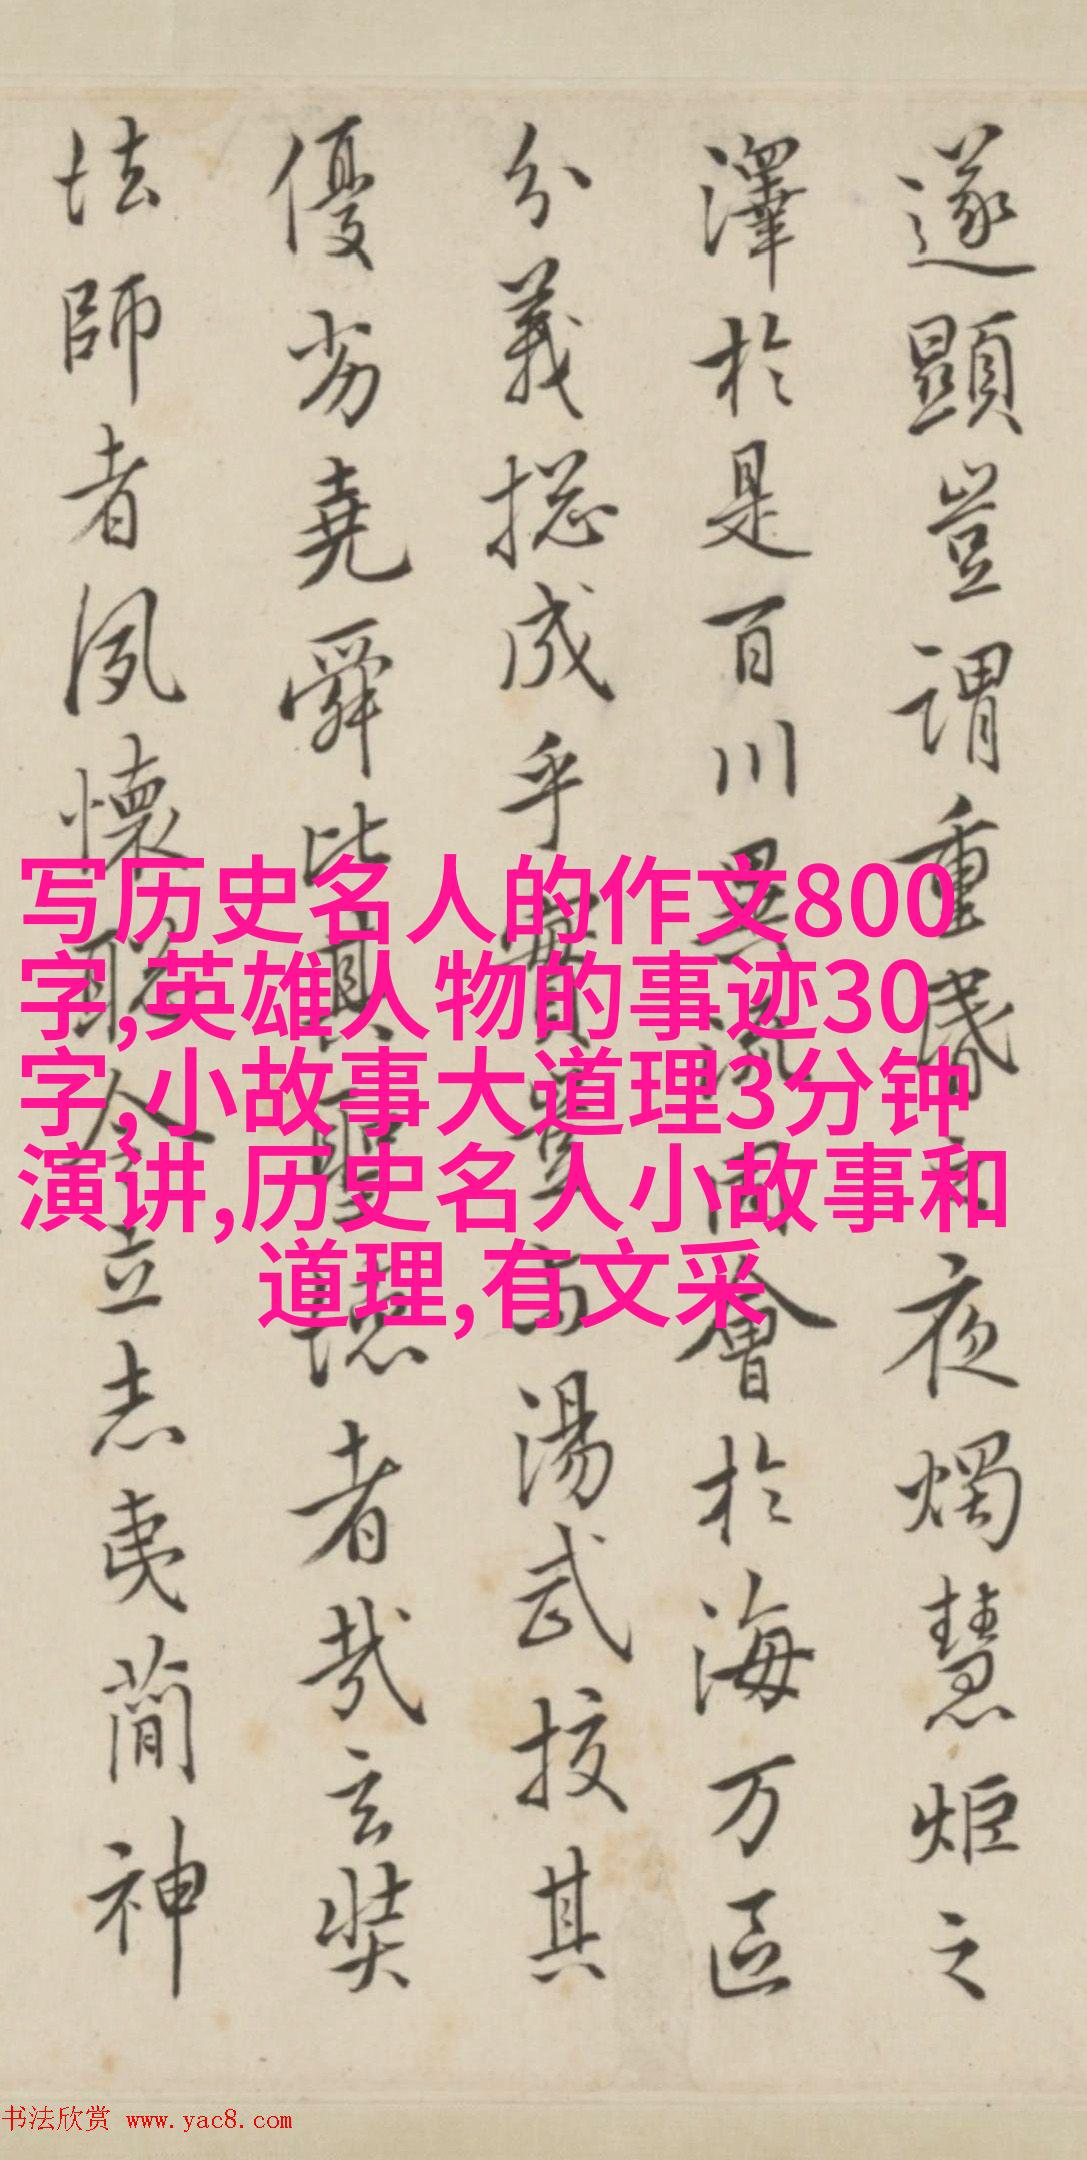 遂顯豈謂重昏之夜燭慧炬之
澤於是百川異流同會於海万區
分義揔成乎實豈與湯武挍其
優劣堯舜比其聖德者哉玄奘
法師者夙懷聰令立志夷簡神
写历史名人的作文800
字,英雄人物的事迹30
字,小故事大道理3分钟
演讲,历史名人小故事和
道理,有文采
书法欣赏 www.yac8.com